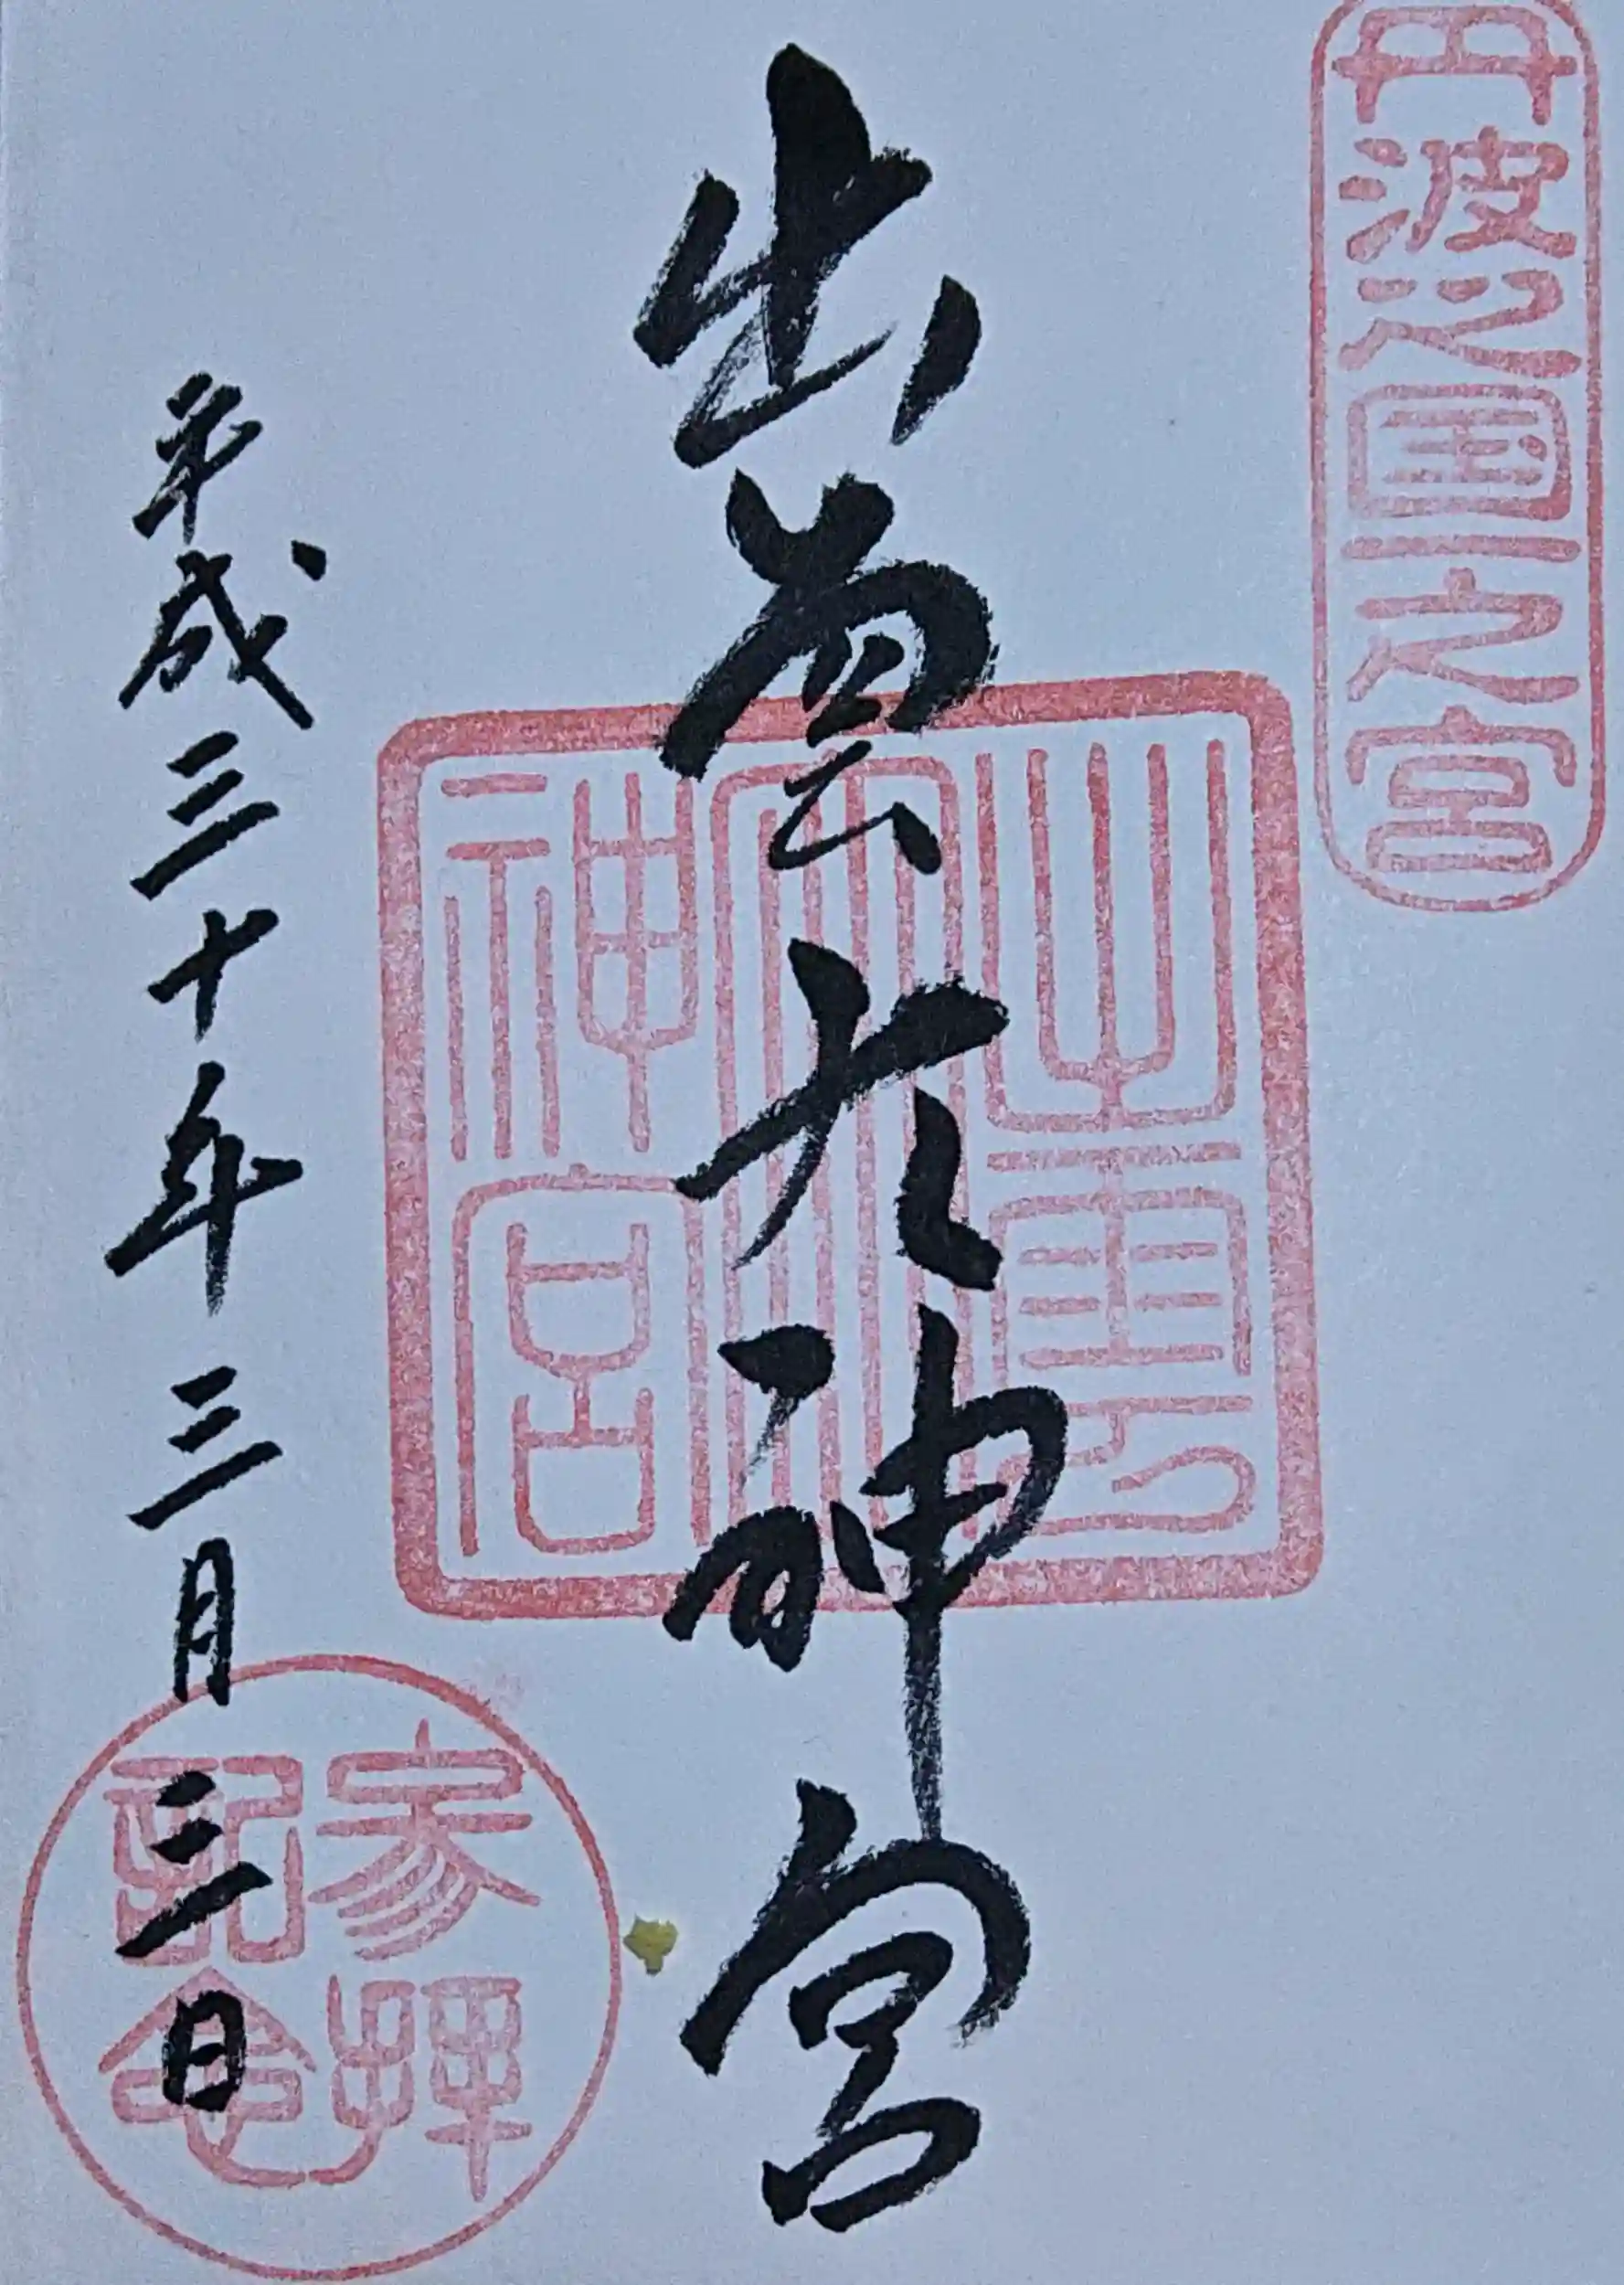 丹波之国一之宮
出雲大神宮
出雲大神宮
平成三十年三月三日
参拝記念